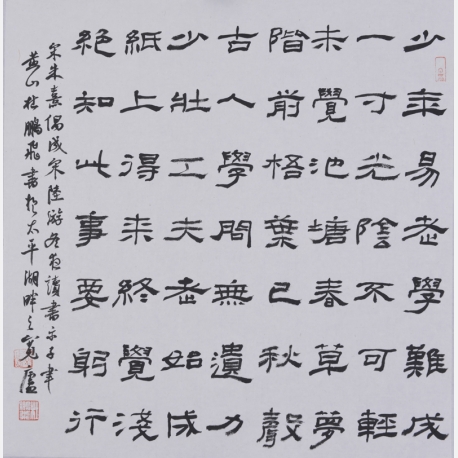 少年易老學難成
一寸光陰不可輕
未覺池塘春草夢
階前梧葉已秋聲
古人學問無遺力
少壯工夫老始成
紙上得來終覺淺
絕知此事要躬行
宋朱熹偶成宋陸游冬夜讀書示子聿
黃山杜鵬飛書於太平湖畔之寬廬